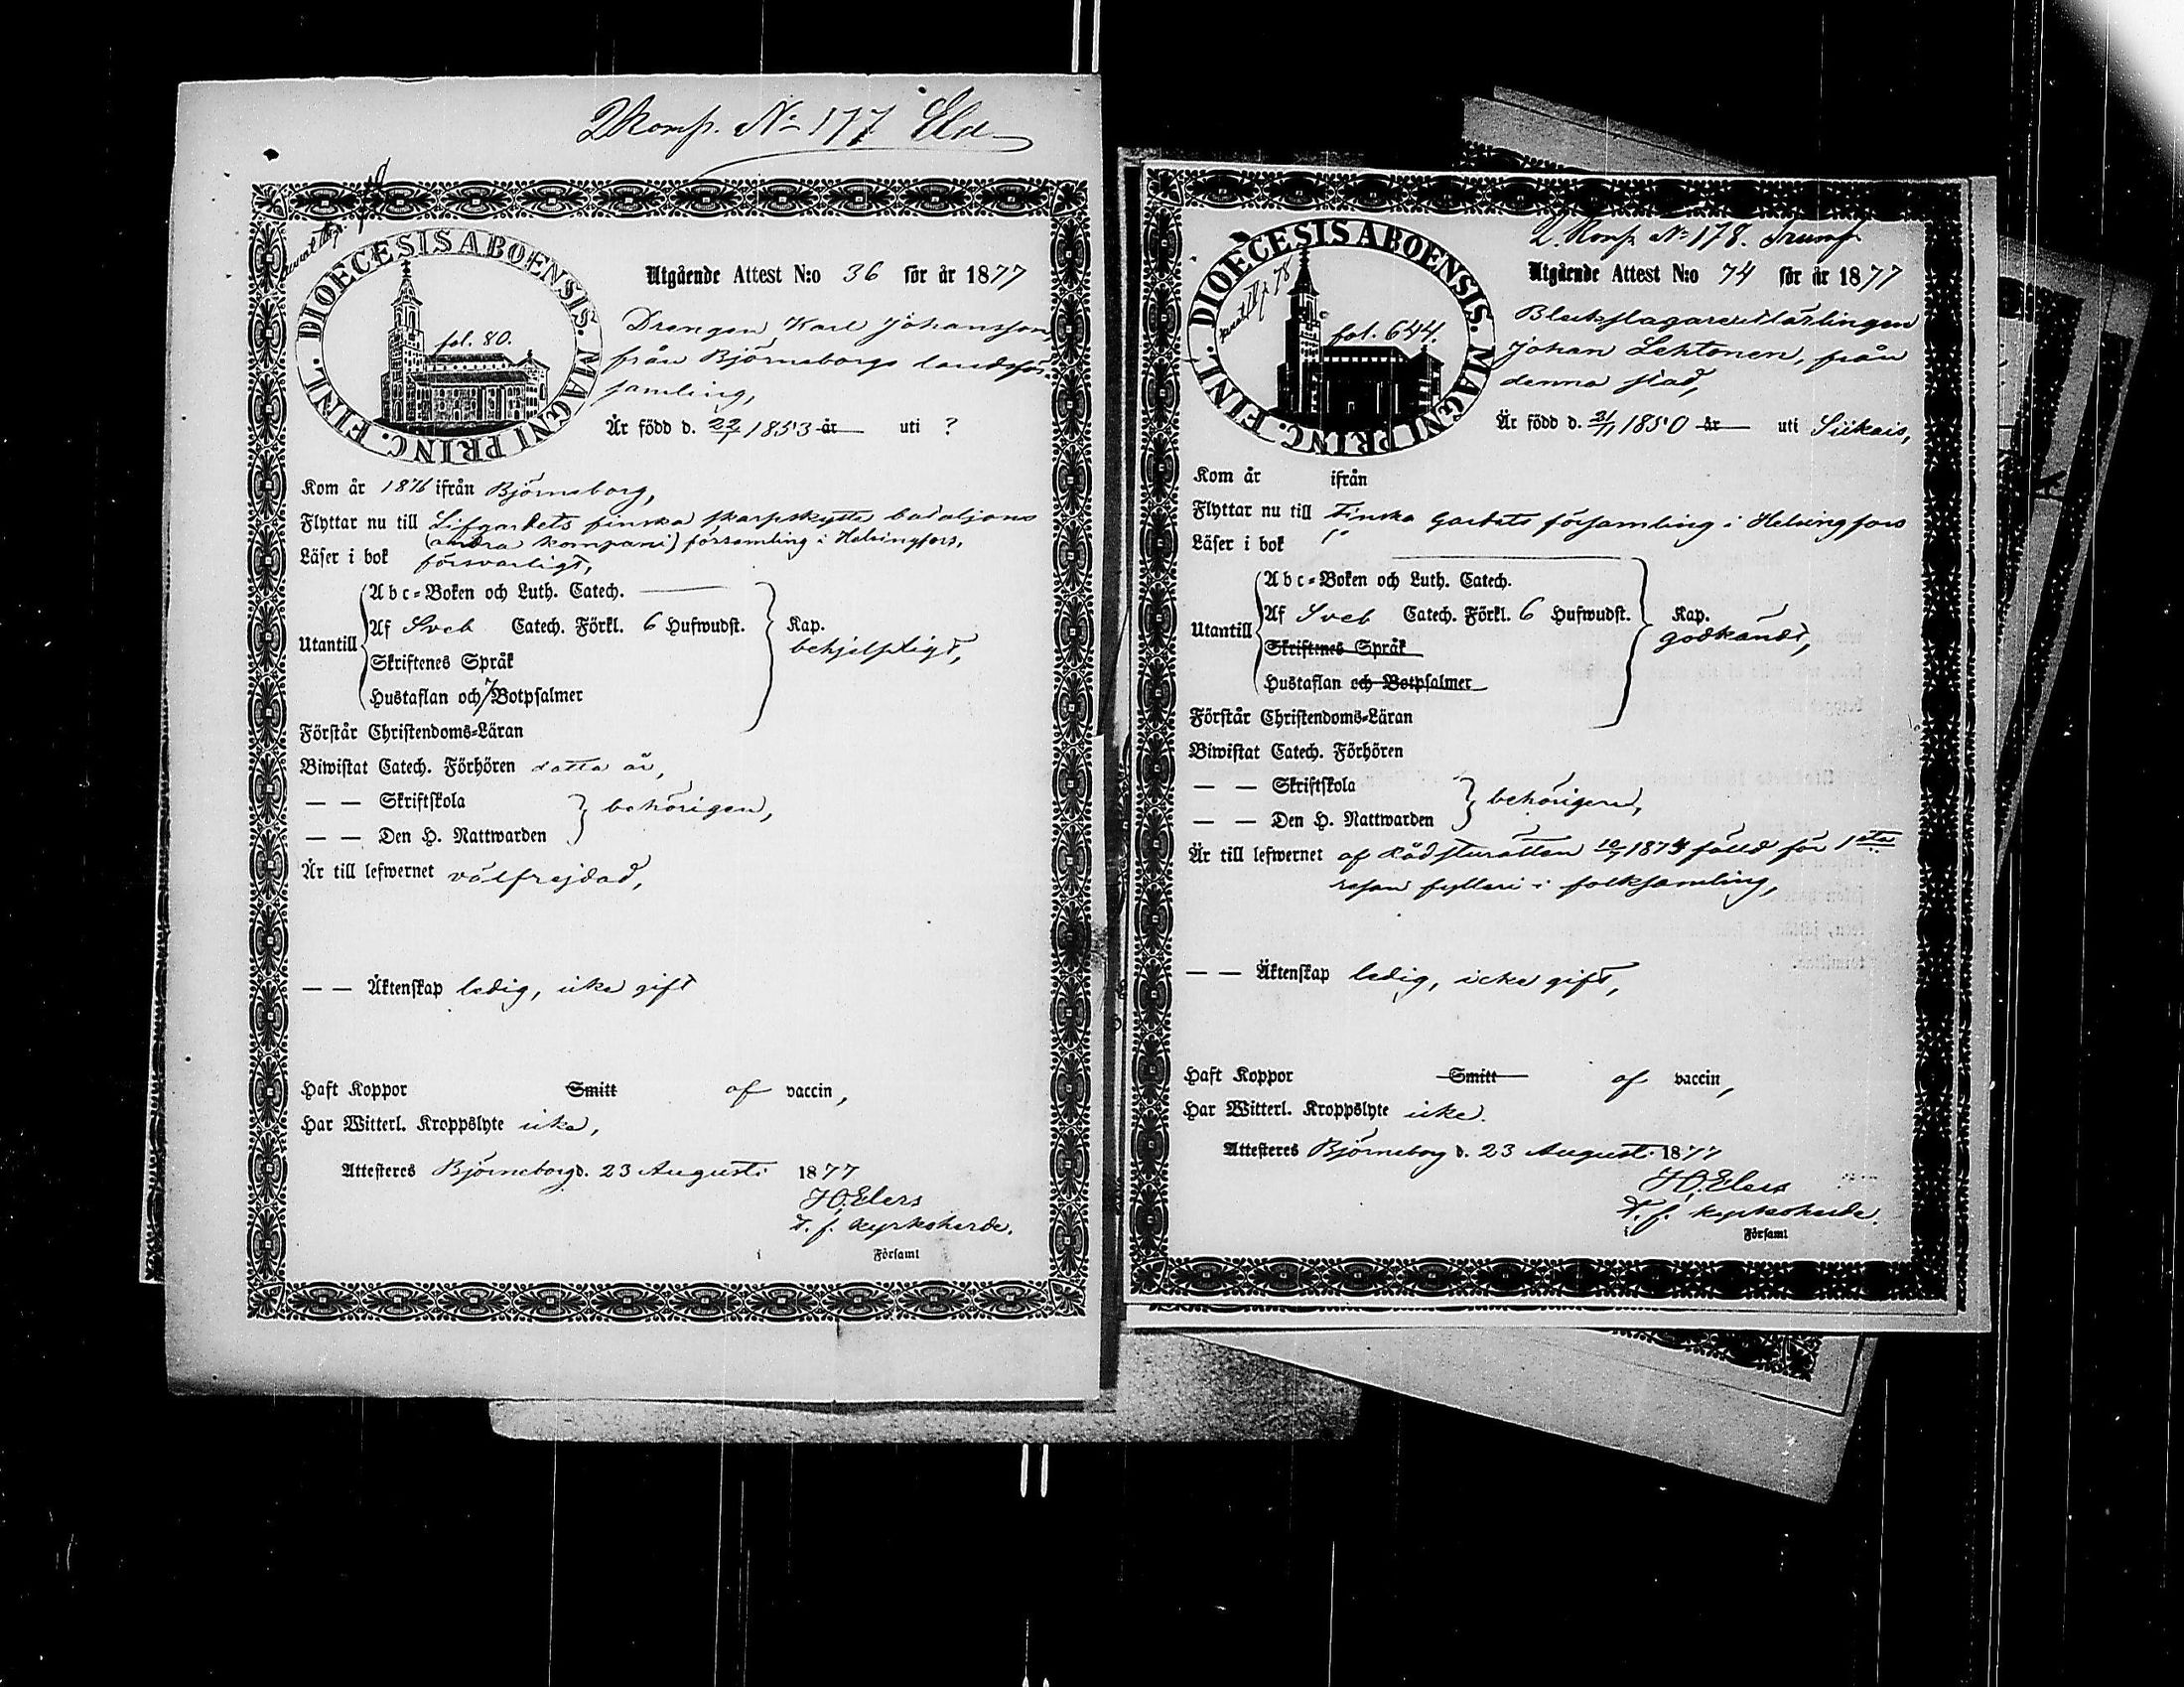 2 Komp. No 177 Eld
DIOECESIS ABOENSIS. MAGNI PRINC. FINL.
fol. 80.
Utgående Attest N:o 36 för år 1877
Drengen Karl Johansson,
från Björneborgs landsför-
samling,
Är född d. 22/7 1853 år uti ?
Kom år 1876 ifrån Björneborg,
Flyttar nu till Lifgardets finska skarpskytte bataljons
(andra kompani) församling i Helsingfors,
Läser i bok försvarligt,
Abc-Boken och Luth. Catech.
Utantill
Af Sveb Catech. Förkl. 6 Hufwudst. Kap.
behjelpligt,
Skriftenes Språk
Hustaflan och 7 Botpsalmer
Förstår Christendoms-Läran
Biwistat Catech. Förhören detta år,
— — Skriftskola
behörigen,
— — Den H. Nattwarden
Är till lefwernet välfrejdad,
— — Äktenskap ledig, icke gift
Haft Koppor Smitt af vaccin,
Har Witterl. Kroppslyte icke,
Attesteres Björneborg d. 23 Augusti 1877
H.O. Elers
T. f. kyrkoherde.
i Församl
2. Komp. No 178. Trumf
DIOECESIS ABOENSIS. MAGNI PRINC. FINL.
fol. 644.
Utgående Attest N:o 74 för år 1877
Bleckslagarelärlingen
Johan Lehtonen, från
denna stad,
Är född d. 21/11 1850 år uti Siikais,
Kom år ifrån
Flyttar nu till Finska Gardets församling i Helsingfors
Läser i bok
Abc-Boken och Luth. Catech.
Utantill
Af Sveb Catech. Förkl. 6 Hufwudst. Kap.
godkändt,
Skriftenes Språk
Hustaflan och Botpsalmer
Förstår Christendoms-Läran
Biwistat Catech. Förhören
— — Skriftskola
behörigen,
— — Den H. Nattwarden
Är till lefwernet af Rådsturätten 10/7 1874 fälld för 1sta
resan fylleri i folksamling,
— — Äktenskap ledig, icke gift,
Haft Koppor Smitt af vaccin,
Har Witterl. Kroppslyte icke.
Attesteres Björneborg d. 23 Augusti 1877
H.O. Elers
T. f. kyrkoherde.
i Församl